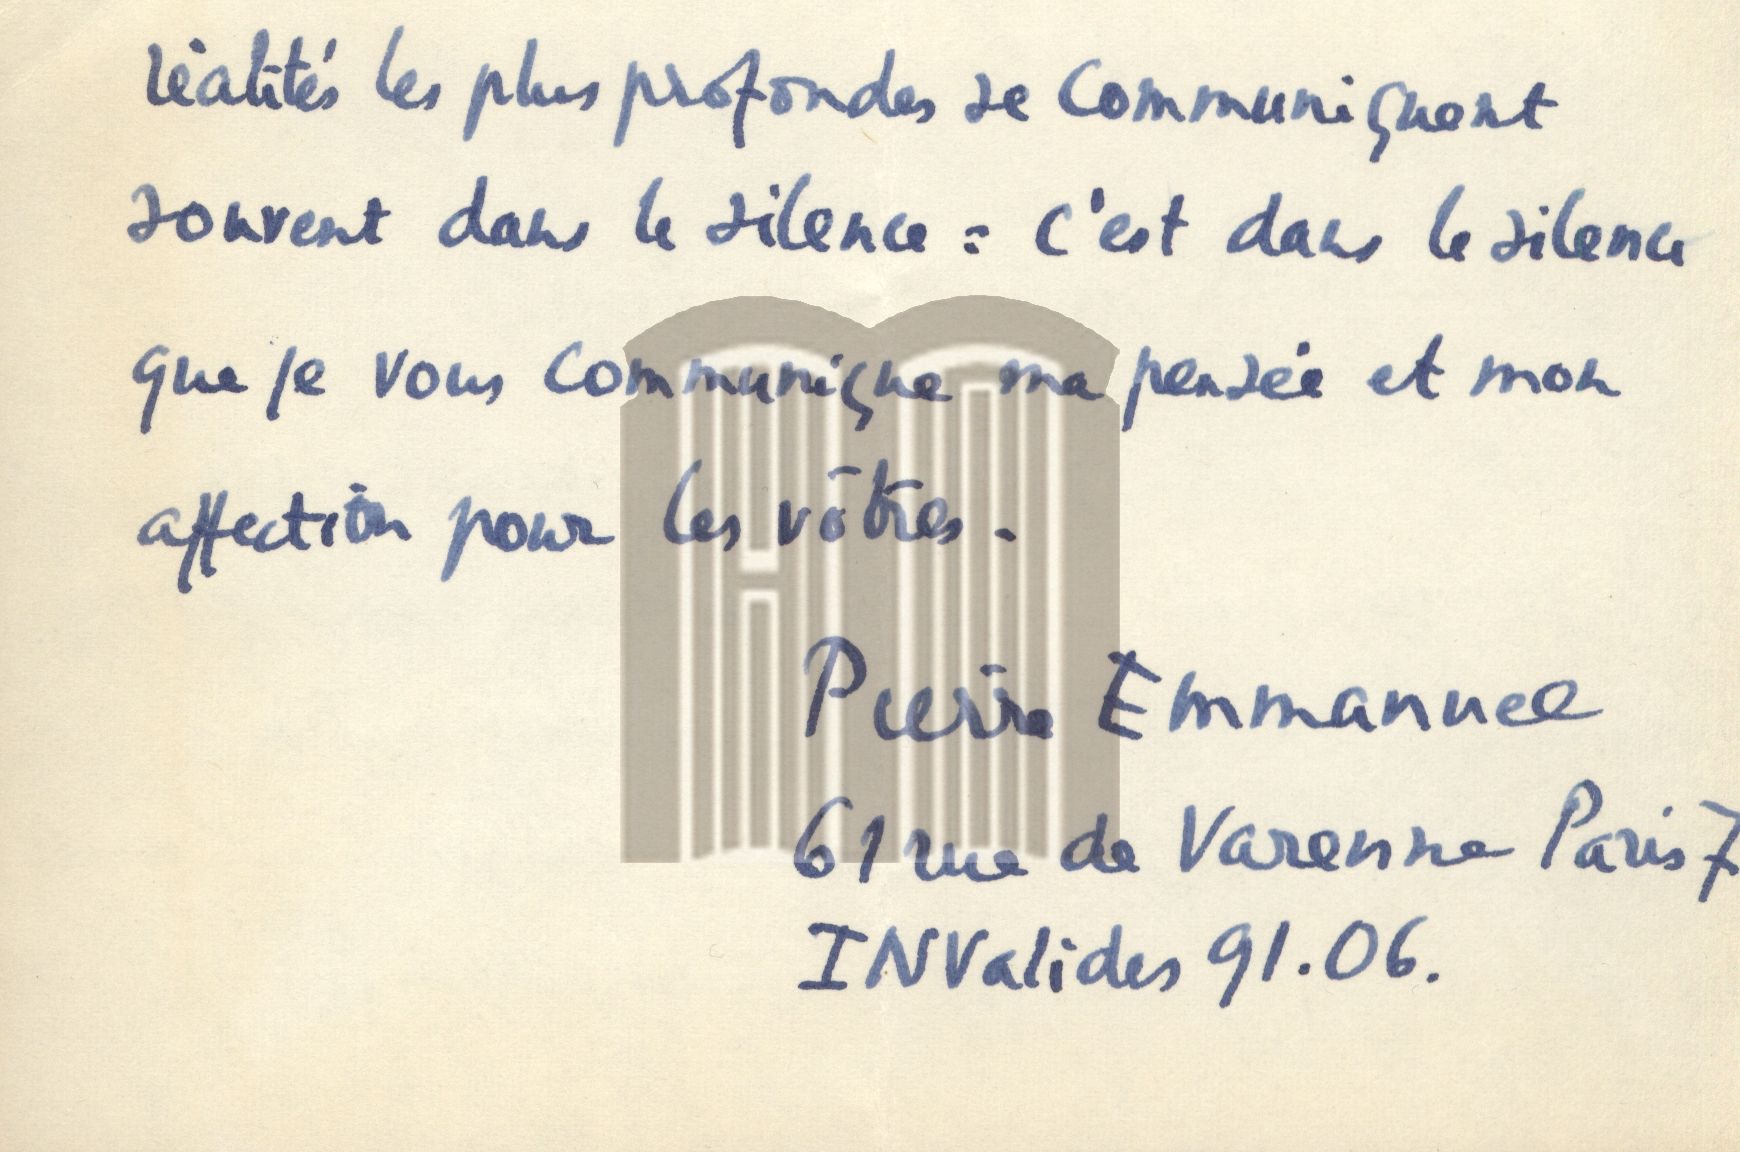 réalités les plus profondes se communiquent
souvent dans le silence : c'est dans le silence
que je vous communique ma pensée et mon
affection pour les vôtres.
Pierre Emmanuel
61 rue de Varenne Paris 7
INValides 91.06.